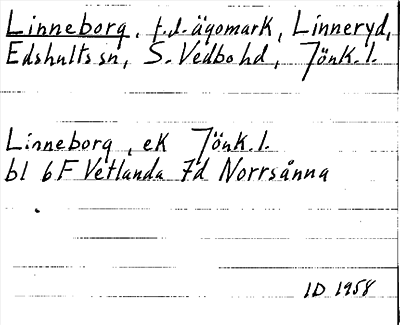 Linneborg, t.d. ägomark, Linneryd,
Edshults sn, S. Vedbo hd, Jönk. l.
Linneborg, ek Jönk. l.
bl 6F Vetlanda 7d Norrsånna
ID 1958